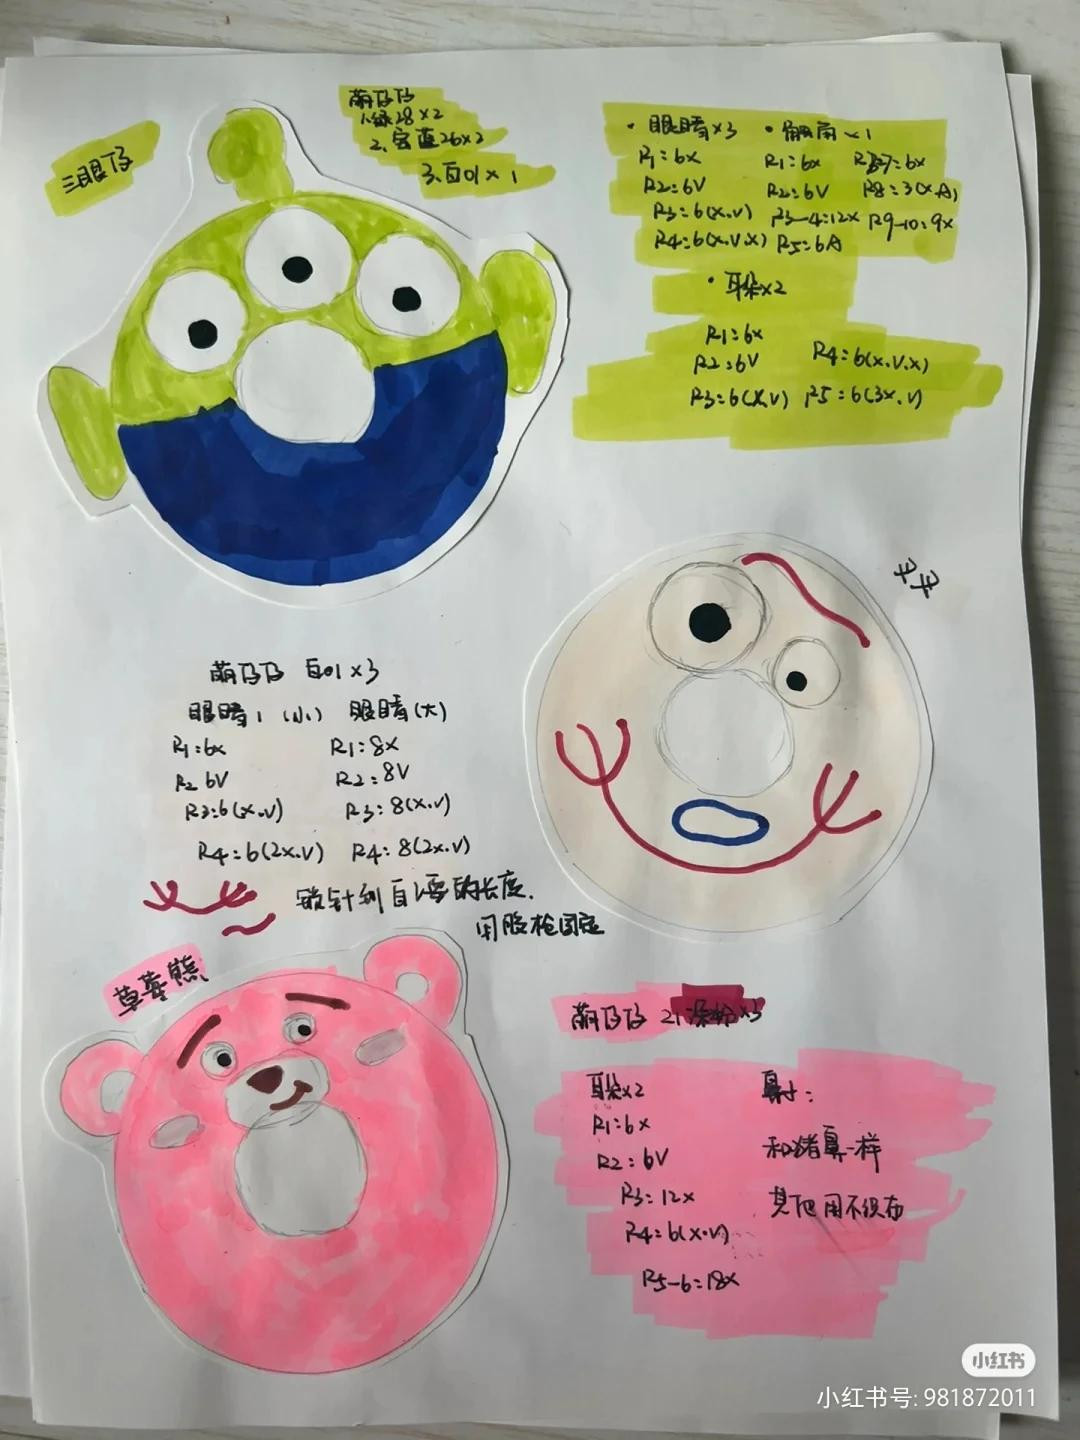 三眼仔
萌仔仔
1、绿28×2
2、宝蓝26×2
3、白01×1
·眼睛×3
R1:6x
R2:6V
R3:6(x.v)
R4:6(x.v.x)
·触角×1
R1:6x
R2:6V
R3-4:12x
R5:6A
R7:6x
R8:3(x.A)
R9-10:9x
·耳朵×2
R1:6x
R2:6V
R3:6(x.v)
R4:6(x.v.x)
R5:6(3x.v)
叉叉
萌仔仔 白01×3
眼睛1(小)
R1:6x
R2 6V
R3:6(x.v)
R4:6(2x.v)
眼睛(大)
R1:8x
R2:8V
R3:8(x.v)
R4:8(2x.v)
锁针到自己要的长度.
用胶枪固定
草莓熊
萌仔仔 21深粉×3
耳朵×2
R1:6x
R2:6V
R3:12x
R4:6(x.v)
R5-6:18x
鼻子:
和猪鼻一样
其他用不织布
小红书
小红书号: 981872011